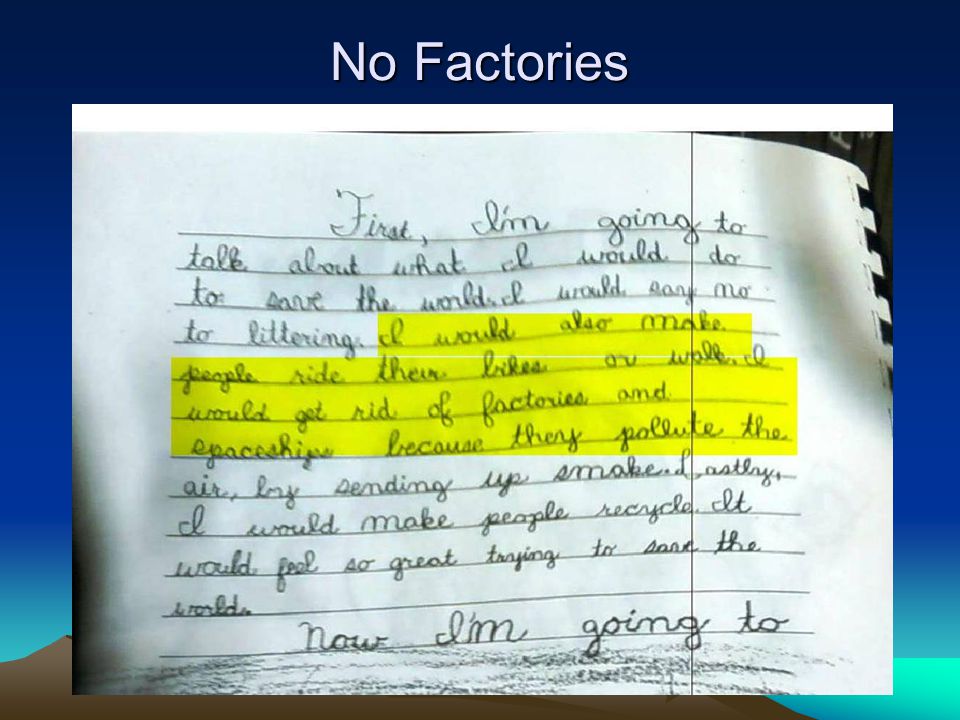 No Factories
First, I'm going to
talk about what I would do
to save the world. I would say no
to littering. I would also make
people ride their bikes or walk. I
would get rid of factories and
spaceships because they pollute the
air, by sending up smoke. Lastly,
I would make people recycle. It
would feel so great trying to save the
world.
Now I'm going to